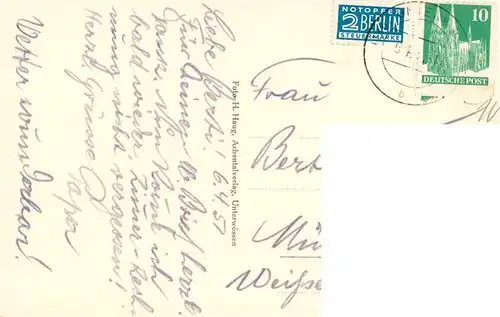 Liebe Berti! 6.4.51
Für Deinen l. Brief herzl.
Dank. Nun komme ich
bald wieder, Zimmer-
muns nicht vergessen!
Herzl. Grüsse
Papa
Wetter wunderbar!
Foto H. Haug, Achentalverlag, Unterwössen
NOTOPFER
2 BERLIN
STEUERMARKE
10
DEUTSCHE POST
Frau
Bert
Mü
Weiße